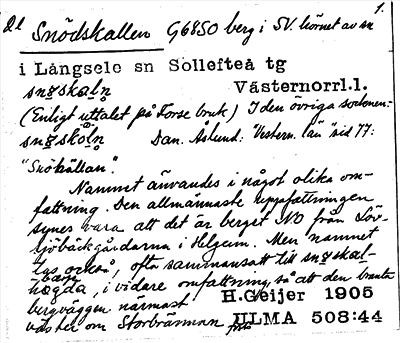 21 Snödskallen G6850 berg i SV. hörnet av sn 1.
i Långsele sn Sollefteå tg
snø̱ska̱lṇ Västernorrl.l.
(Enligt uttalet på Forse bruk) I den övriga socknen:
snø̱skȯ̱lṇ Dan. Åslund: "Västern. län" sid 77:
"Snökällan".
Namnet användes i något olika om-
fattning. Den allmännaste uppfattningen
synes vara att det är berget NO från Löv-
sjöbäckgårdarna i Helgum. Men namnet
lys också, ofta sammansatt till snø̱skal-
høgda, i vidare omfattning, så att den branta
bergväggen närmast H.Geijer 1905
väster om Storbrännan ULMA 508:44